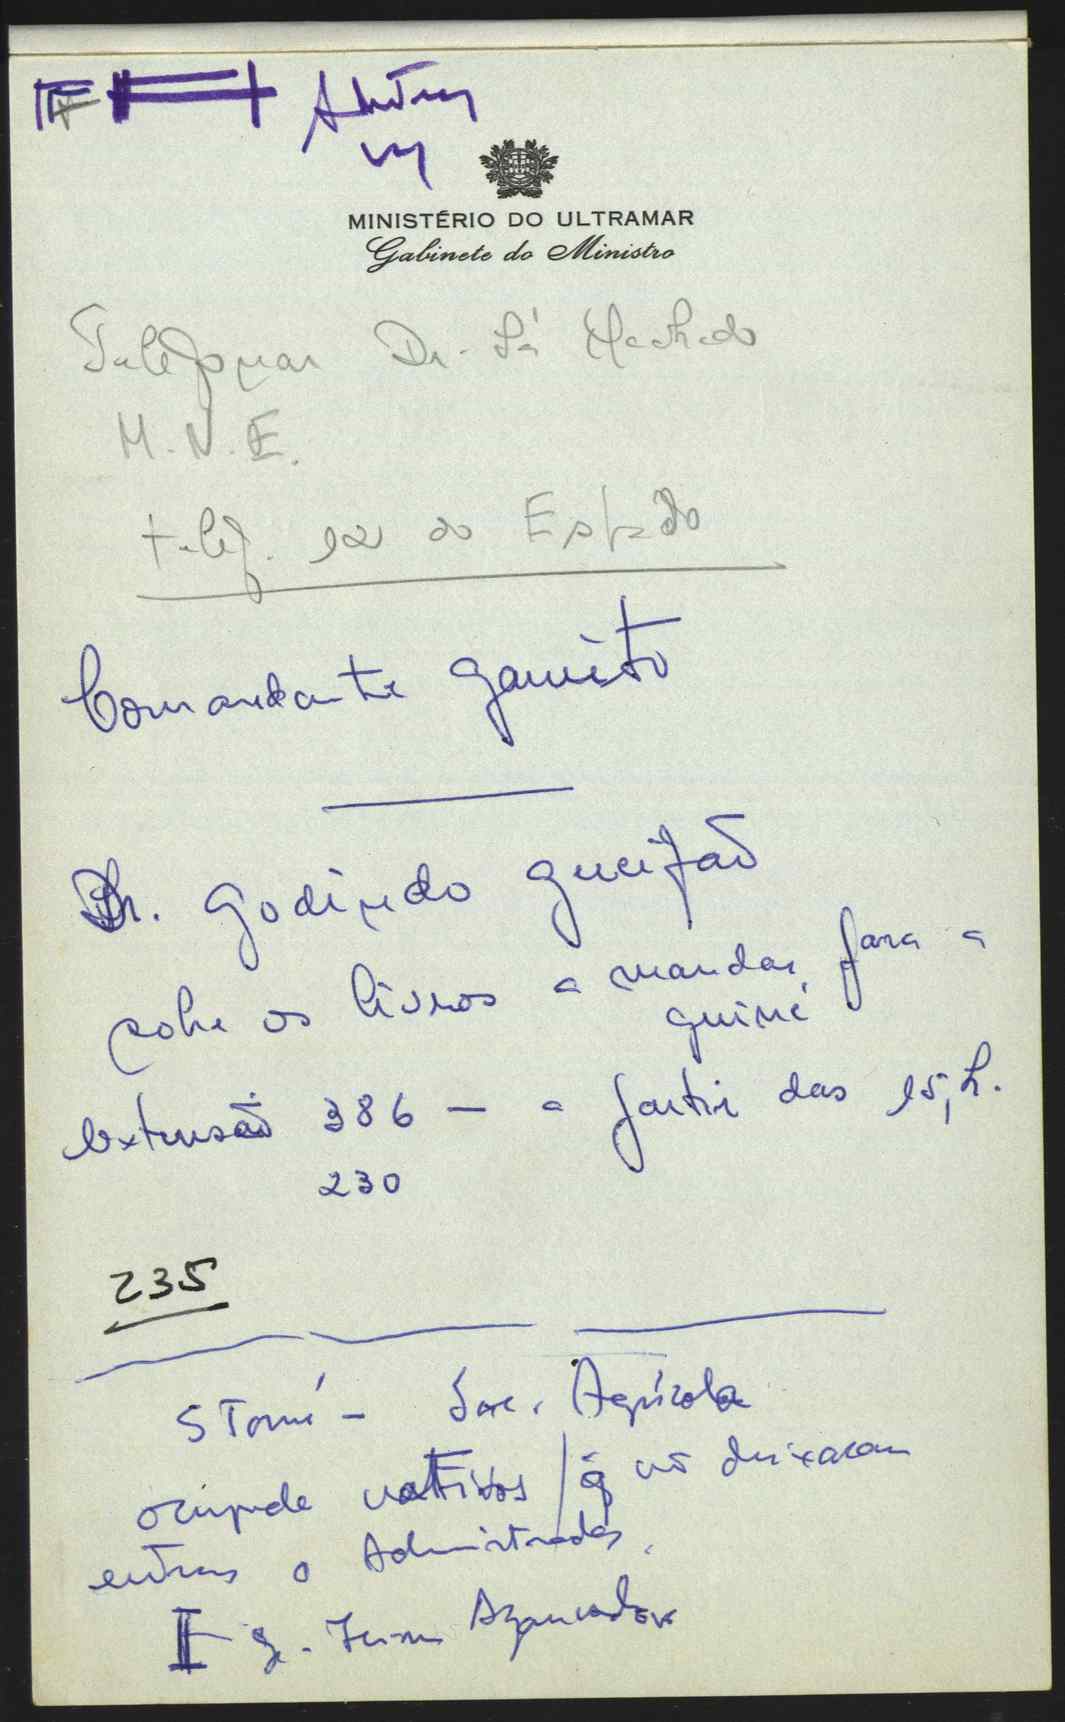 MINISTÉRIO DO ULTRAMAR
Gabinete do Ministro
Telefonar Dr. Sá Machado
M.N.E.
telef. 12 do Estado
Comandante Gamito
Dr. Godinho Gueifão
sobre os livros a mandar para a
Guiné
Extensão 386 — a partir das 15,h.
230
235
S Tomé - Soc. Agrícola
ocupada nativos q nõ deixaram
entrar o Administrador.